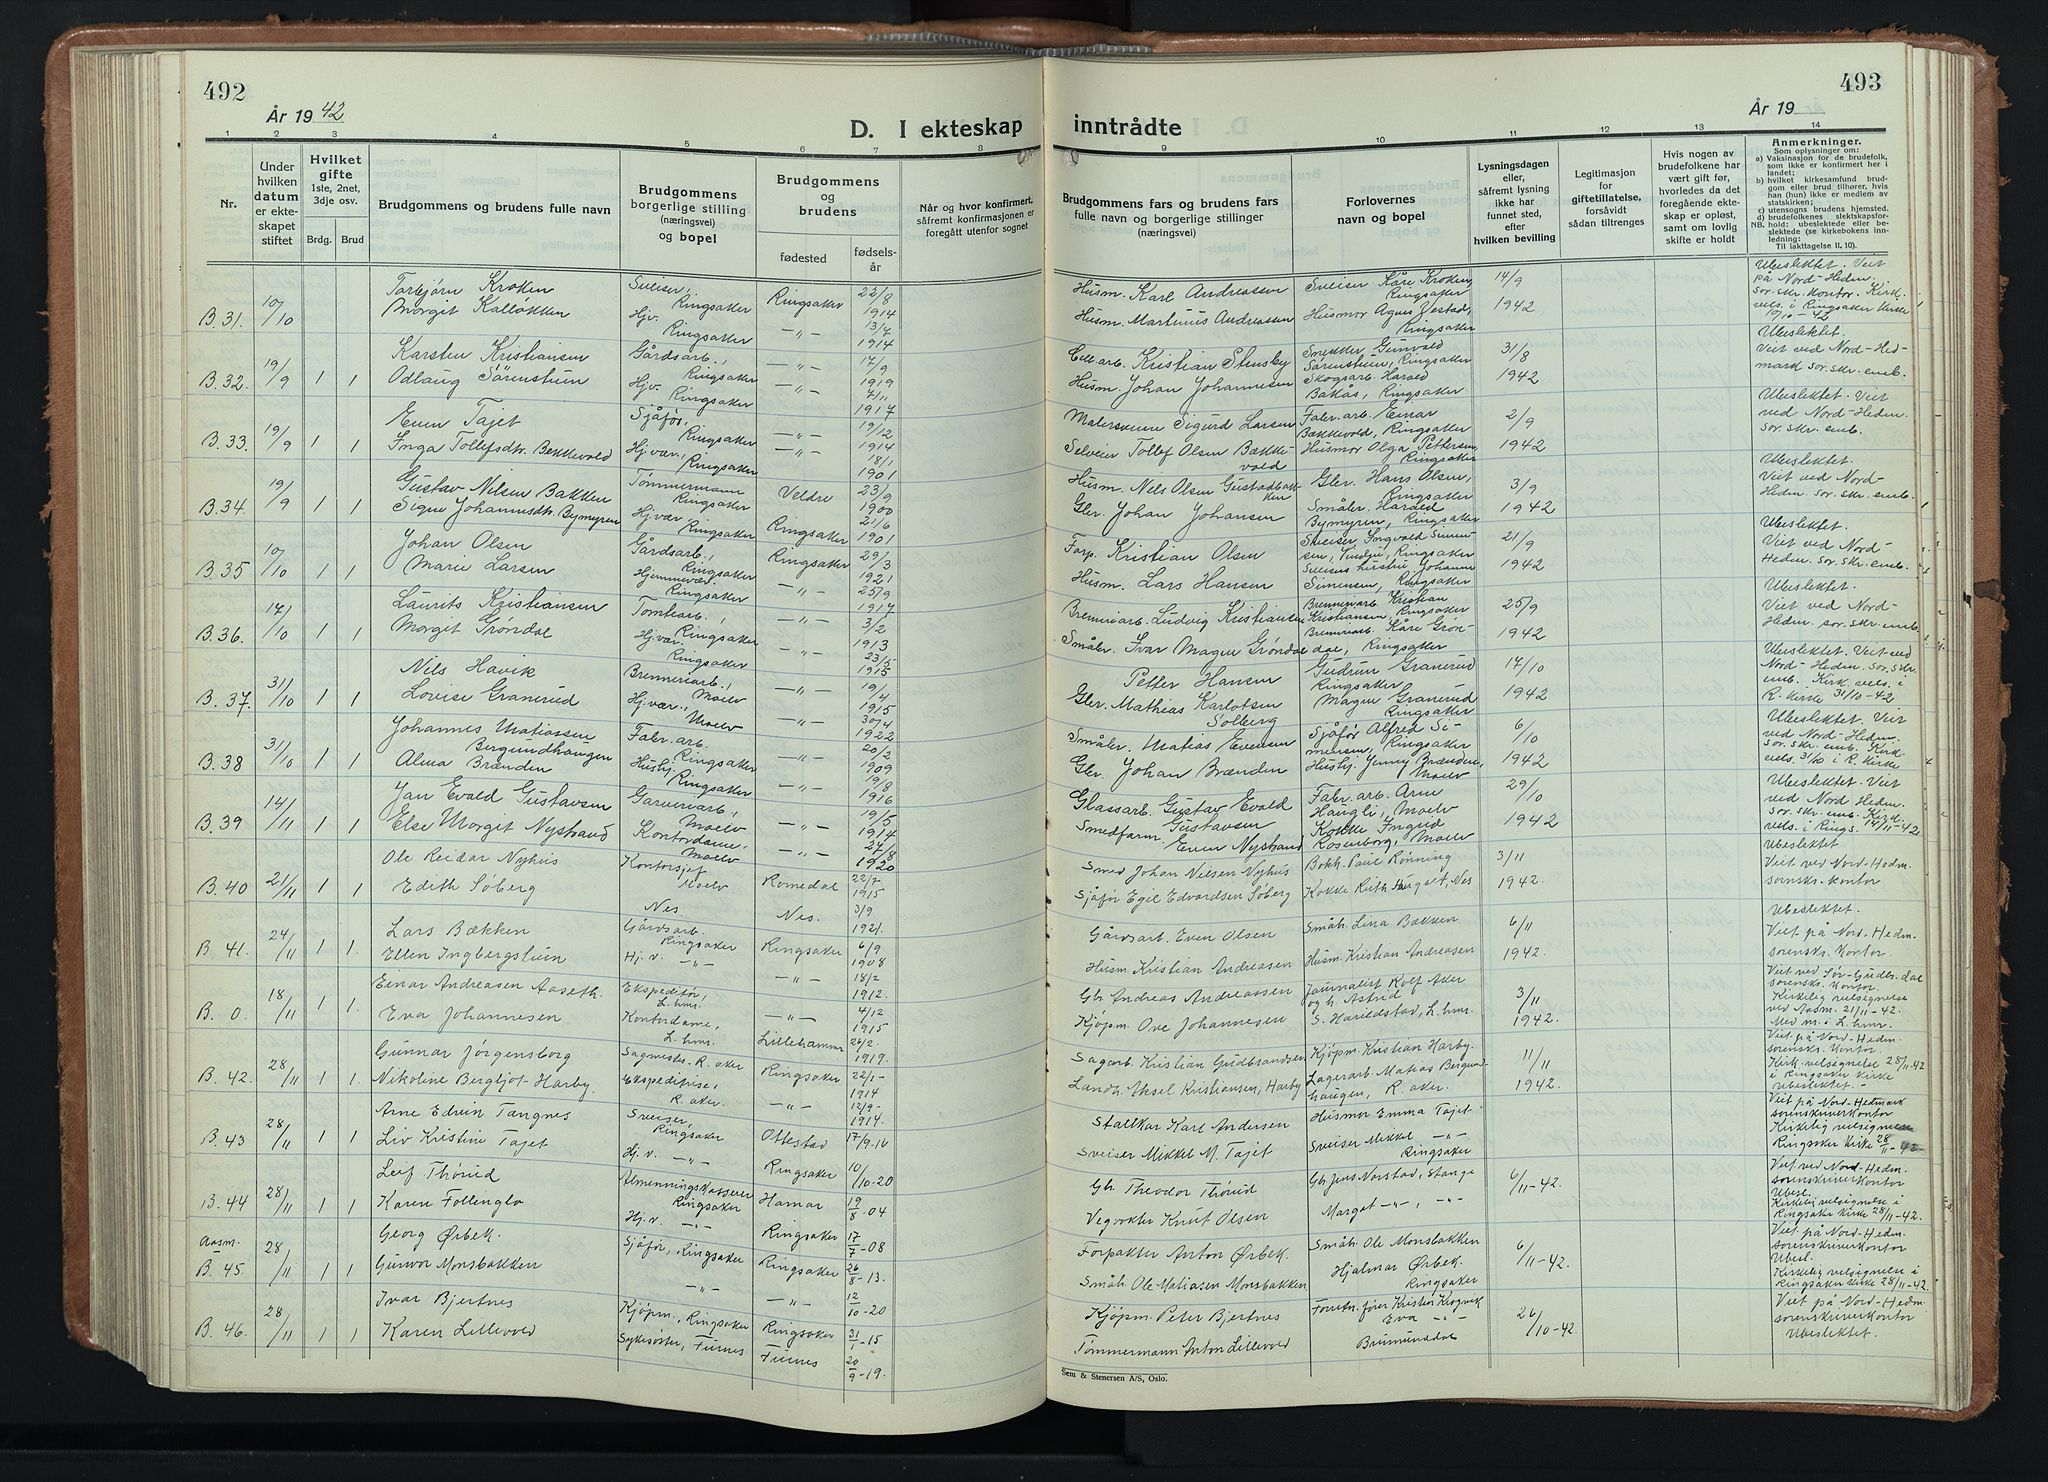 492
År 1942
D. I ekteskap
1
2
3
4
5
6
7
8
Nr.
Under hvilken datum er ekteskapet stiftet
Hvilket gifte
1ste, 2net, 3dje osv.
Brdg. Brud
Brudgommens og brudens fulle navn
Brudgommens borgerlige stilling (næringsvei) og bopel
Brudgommens og brudens
fødested
fødselsår
Når og hvor konfirmert, såfremt konfirmasjonen er foregått utenfor sognet
B. 31. 10/10 Torbjørn Kroken Sveiser, Ringsaker Ringsaker 22/8 1914
Margit Kalløkken Hjv. Ringsaker —„— 13/7 1914
B. 32. 19/9 1 1 Karsten Kristiansen Gårdsarb., Ringsaker —„— 17/9 1919
Odlaug Sørenstuen Hjv. Ringsaker —„— 7/11 1917
B. 33. 19/9 1 1 Even Tajet Sjåfør. Ringsaker —„— 19/12 1914
Inga Tollefsdtr. Bekkevold Hj.vær., Ringsaker —„— 18/1 1901
B. 34. 19/9 1 1 Gustav Nilsen Bakken Tømmermann Ringsaker Veldre 23/9 1900
Signe Johannesdtr. Bymyren Hj.vær Ringsaker Ringsaker 21/6 1901
B. 35 10/10 1 1 Johan Olsen Gårdsarb., Ringsaker Ringsaker 29/3 1921
Marie Larsen Hjemmevær., Ringsaker —„— 25/9 1917
B. 36. 17/10 1 1 Laurits Kristiansen Tomtearb., Ringsaker —„— 3/2 1913
Margit Grøndal Hj.vær. Ringsaker —„— 23/5 1915
B. 37. 31/10 1 1 Nils Havik Brenneriarb., Moelv —„— 19/4 1915
Lovise Granerud Hj.vær., Moelv —„— 30/4 1922
B. 38 31/10 1 1 Johannes Matiassen Bergundhaugen Fabr. arb. Ringsaker —„— 20/2 1909
Alma Brænden Hushj. Ringsaker —„— 19/8 1916
B. 39 14/11 1 1 Jan Evald Gustavsen Garveriarb., Moelv —„— 19/5 1914
Else Margit Nystrand Kontordame, Moelv —„— 27/8 1920
B. 40 21/11 1 1 Ole Reidar Nyhus Kontorsjef Moelv Romedal 22/7 1915
Edith Søberg Nes. Nes. 3/9 1921.
B. 41. 24/11 1 1. Lars Bækken Gårdsarb. Ringsaker Ringsaker 6/9 1908
Ellen Ingbergstuen Hj. v. —„— —„— 18/2 1912.
B. 0. 18/11 1 1. Einar Andreasen Aaseth. Ekspeditør, L.hmr. —„— 4/12 1915
Eva Johannesen Kontordame, L. hmr. Lillehammer 26/2. 1919.
B. 42. 28/11 1 1. Gunnar Jørgensborg Sagmester. R. aker Ringsaker 22/1- 1914
Nikoline Bergljot Harby. Ekspeditrise, R. aker. —„— 12/9- 1914.
B. 43 28/11 1 1 Arne Edvin Tangnes Sveiser, Ringsaker Ottestad 17/9-16
Liv Kristine Tajet Hj. v. —„— Ringsaker 10/10-20
B. 44 28/11 1 1 Leif Thorud Almenningskasserer Ringsaker Hamar 19/8-04
Karen Follinglo Hj. v. —„— Ringsaker 17/7-08
Aasm. B. 45. 28/11 1 1 Georg Ørbek. Sjåfør, Ringsaker Ringsaker 26/8-13.
Gunvor Monsbakken —„— —„— 12/10-20
B. 46. 28/11 1 1 Ivar Bjertnes Kjøpm., Ringsaker Ringsaker 31/1-15
Karen Lillevold Sykesøster, Furnes Furnes 20/9-19.
493
År 19
inntrådte
9
10
11
12
13
14
Brudgommens fars og brudens fars fulle navn og borgerlige stillinger (næringsvei)
Forlovernes navn og bopel
Lysningsdagen eller, såfremt lysning ikke har funnet sted, efter hvilken bevilling
Legitimasjon for giftetillatelse, forsåvidt sådan tiltrenges
Hvis nogen av brudefolkene har vært gift før, hvorledes da det foregående ekteskap er opløst, samt om lovlig skifte er holdt
Anmerkninger.
Som oplysninger om:
a) Vaksinasjon for de brudefolk, som ikke er konfirmert her i landet;
b) hvilket kirkesamfund brudgom eller brud tilhører, hvis han (hun) ikke er medlem av statskirken;
c) utensogns brudens hjemsted.
d) brudefolkenes slektskapsforhold: ubeslektede eller beslektede (se kirkebokens innledning:
NB.
Til iakttagelse II, 10).
Husm. Karl Andreassen Sveiser Kåre Kroken, Ringsaker 14/9 1942 Ubeslektet. Viet på Nord-Heden. sor. skr. kontor. Kirk. vels. i Ringsaker Kirke 10/10-42
Husm. Martinus Andreassen Husmor Agnes Jestad, Ringsaker
Kristian Stensby Snekker Gunvald Sørenstuen, Ringsaker 31/8 1942 Ubeslektet. Viet ved Nord-Hedmark sor. skr. emb.
Husm. Johan Johannesen Skogsarb. Harald Bakås, Ringsaker
Malersvenn Sigurd Larsen Fabr. arb. Einar Bækkevold, Ringsaker 2/9 1942 Ubeslektet. Viet ved Nord-Hedem. sor. skr. emb.
Selveier Tollef Olsen Bækkevold Husmor Olga Pettersen, Ringsaker
Husm. Nels Olsen Gustadbakken Gbr. Hans Olsen, Ringsaker 3/9 1942 Ubeslektet. Viet ved Nord-Hedem. sor. skr. emb.
Gbr. Johan Johansen Småbr. Harald Bymyren, Ringsaker
Forp. Kristian Olsen Sveiser Ingvald Simensen, Ringsaker 21/9 1942 Ubeslektet. Viet ved Nord-Heden. sor. skr. emb.
Husm. Lars Hansen Johanne Simensen, Ringsaker
Brenneriarb. Ludvig Kristiansen Brenneriarb. Kristian Kristiansen, Ringsaker 25/9 1942 Ubeslektet. Viet ved Nord-Hedm. sor. skr. emb.
Småbr. Ivar Magnus Grøndal Brenneriarb. Kåre Grøndal, Ringsaker
Petter Hansen Gudrun Granerud Ringsaker 17/10 1942 Ubeslektet. Viet ved Nord-Heden. sor. skr. emb. Kirk. vels. i R. kirke 31/10-42
Gbr. Mathias Karlotsen Solberg Magne Granerud Ringsaker
Småbr. Matias Evensen Sjåfør Alfred Simensen, Ringsaker 6/10 1942 Ubeslektet. Viet ved Nord-Hedem. sor. skr. emb. Kirk. vels. 31/10 i R. kirke
Gbr. Johan Brænden Hushj. Jenny Brænden, Moelv
Glassarb. Gustav Evald Gustavsen Fabr. arb. Arne Haugli, Moelv 29/10 1942 Ubeslektet. Viet ved Nord Hedem. sor. skr. emb. Kirk. vels. i Rings. 14/11-42
Smedform. Even Nystrand Kokke Ingrid Rosenborg, Moelv
Smed Johan Nilsen Nyhus Bokh. Paul Rønning 3/11 1942. Ubeslektet Viet ved Nord-Hedm. sorenskr. kontor
Sjåfør Egil Edvardsen Søberg Kokke Ruth Nes
Gårdsarb. Even Olsen Småbr. Lina Bækken 6/11 1942. Ubeslektet. Viet på Nord-Hedm. sorenskr. kontor.
Husm. Kristian Andreasen Husm. Kristian Andreasen
Gbr. Andreas Andreassen Journalist Rolf Aker og Astrid 3/11 1942. Viet ved Sør-Gudbr. dal sorenskr. kontor. Kirkelig velsignelse ved Aasm. 21/11-42. Med m. i L. hmr.
Kjøpm. Ove Johannesen S. Haraldstad, L. hmr.
Sagarb. Kristian Gudbrandsen Kjøpm. Kristian Harby. 11/11 1942. Viet på Nord-Hedm. sorenskr. kontor Kirk. velsignelse 28/11-42 i Ringsaker kirke Ubeslektet.-
Landh. Aksel Kristiansen, Harby Lagerarb. Matias Bergundhaugen, R. aker.
Stallkar Karl Andersen Husmor Emma Tajet Viet på Nord-Hedmark sorenskriverkontor Kirkelig velsignelse Ringsaker Kirke 28/11-42
Sveiser Mikkel M. Tajet Sveiser Mikkel —„— Ringsaker
Gbr. Theodor Thorud Gbr. Jens Norstad, Stange 6/11-42. Viet ved Nord-Hedm. sorenskriverkontor Ubesl. Kirkelig velsignelse i Ringsaker kirke 28/11-42.
Vegvokter Knut Olsen Margot —„—, —„—
Forpakter Anton Ørbek. Småbr. Ole Monsbakken 6/11-42. Viet på Nord-Hedm. sorenskriverkontor Ubesl. Kirkelig velsignelse i Ringsaker kirke 28/11-42.
Småbr. Ole Matiasen Monsbakken Hjalmar Ørbek. Ringsaker
Kjøpm. Peter Bjertnes Forretn. fører Kristen Krogvik 26/10-42. Viet på Nord-Hedm. sorenskriverkontor Ubeslektet.
Tømmermann Anton Lillevold Eva —„— Brumunddal
Sem & Stenersen A/S, Oslo.